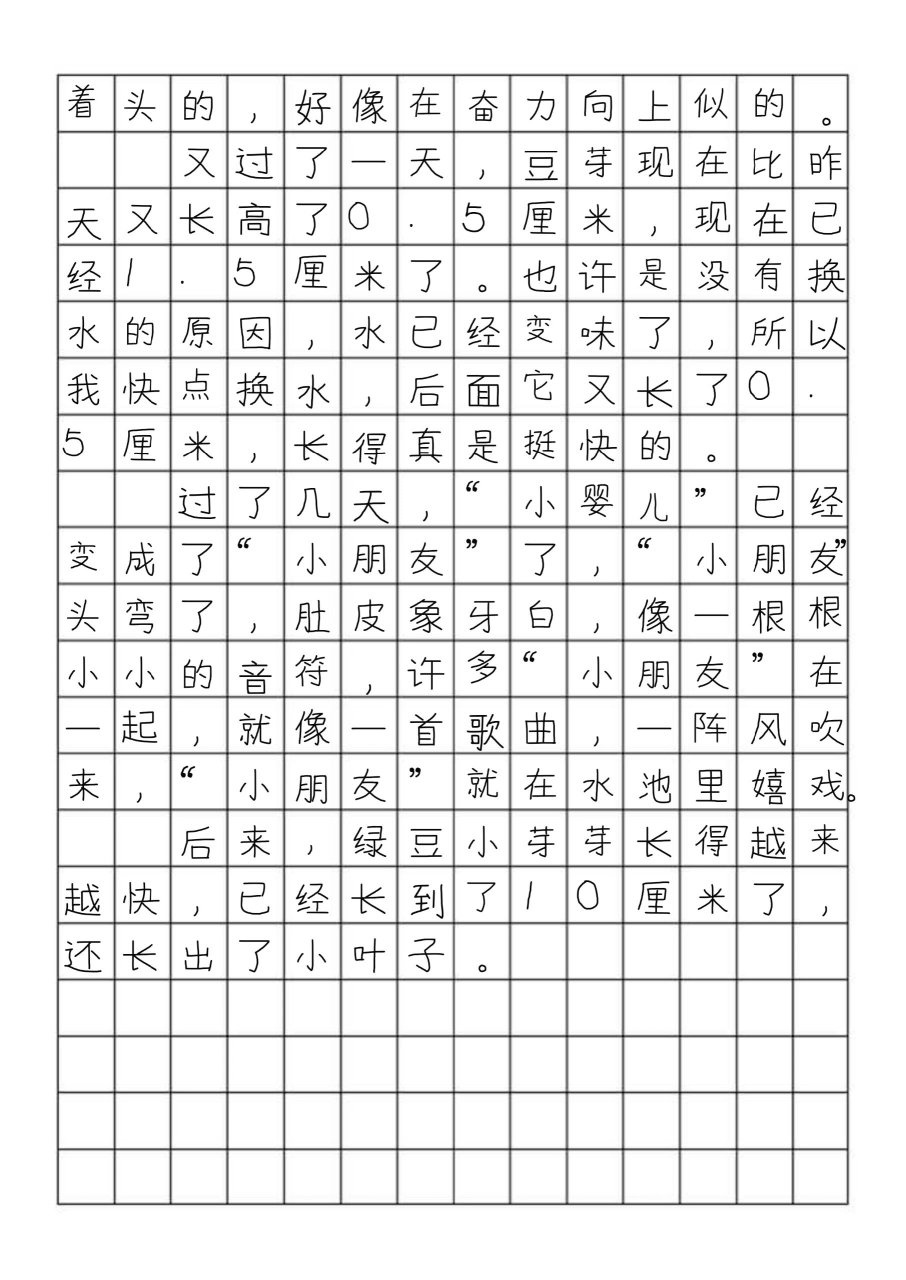 着头的，好像在奋力向上似的。
又过了一天，豆芽现在比昨
天又长高了0.5厘米，现在已
经1.5厘米了。也许是没有换
水的原因，水已经变味了，所以
我快点换水，后面它又长了0.
5厘米，长得真是挺快的。
过了几天，“小婴儿”已经
变成了“小朋友”了，“小朋友”
头弯了，肚皮象牙白，像一根根
小小的音符，许多“小朋友”在
一起，就像一首歌曲，一阵风吹
来，“小朋友”就在水池里嬉戏。
后来，绿豆小芽芽长得越来
越快，已经长到了10厘米了，
还长出了小叶子。